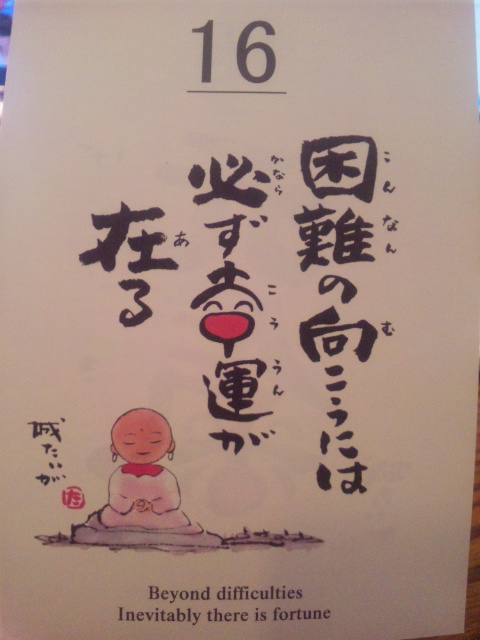 16
困難の向こうには
こんなん む
必ず幸運が
かなら こううん
在る
あ
城たいが
Beyond difficulties
Inevitably there is fortune